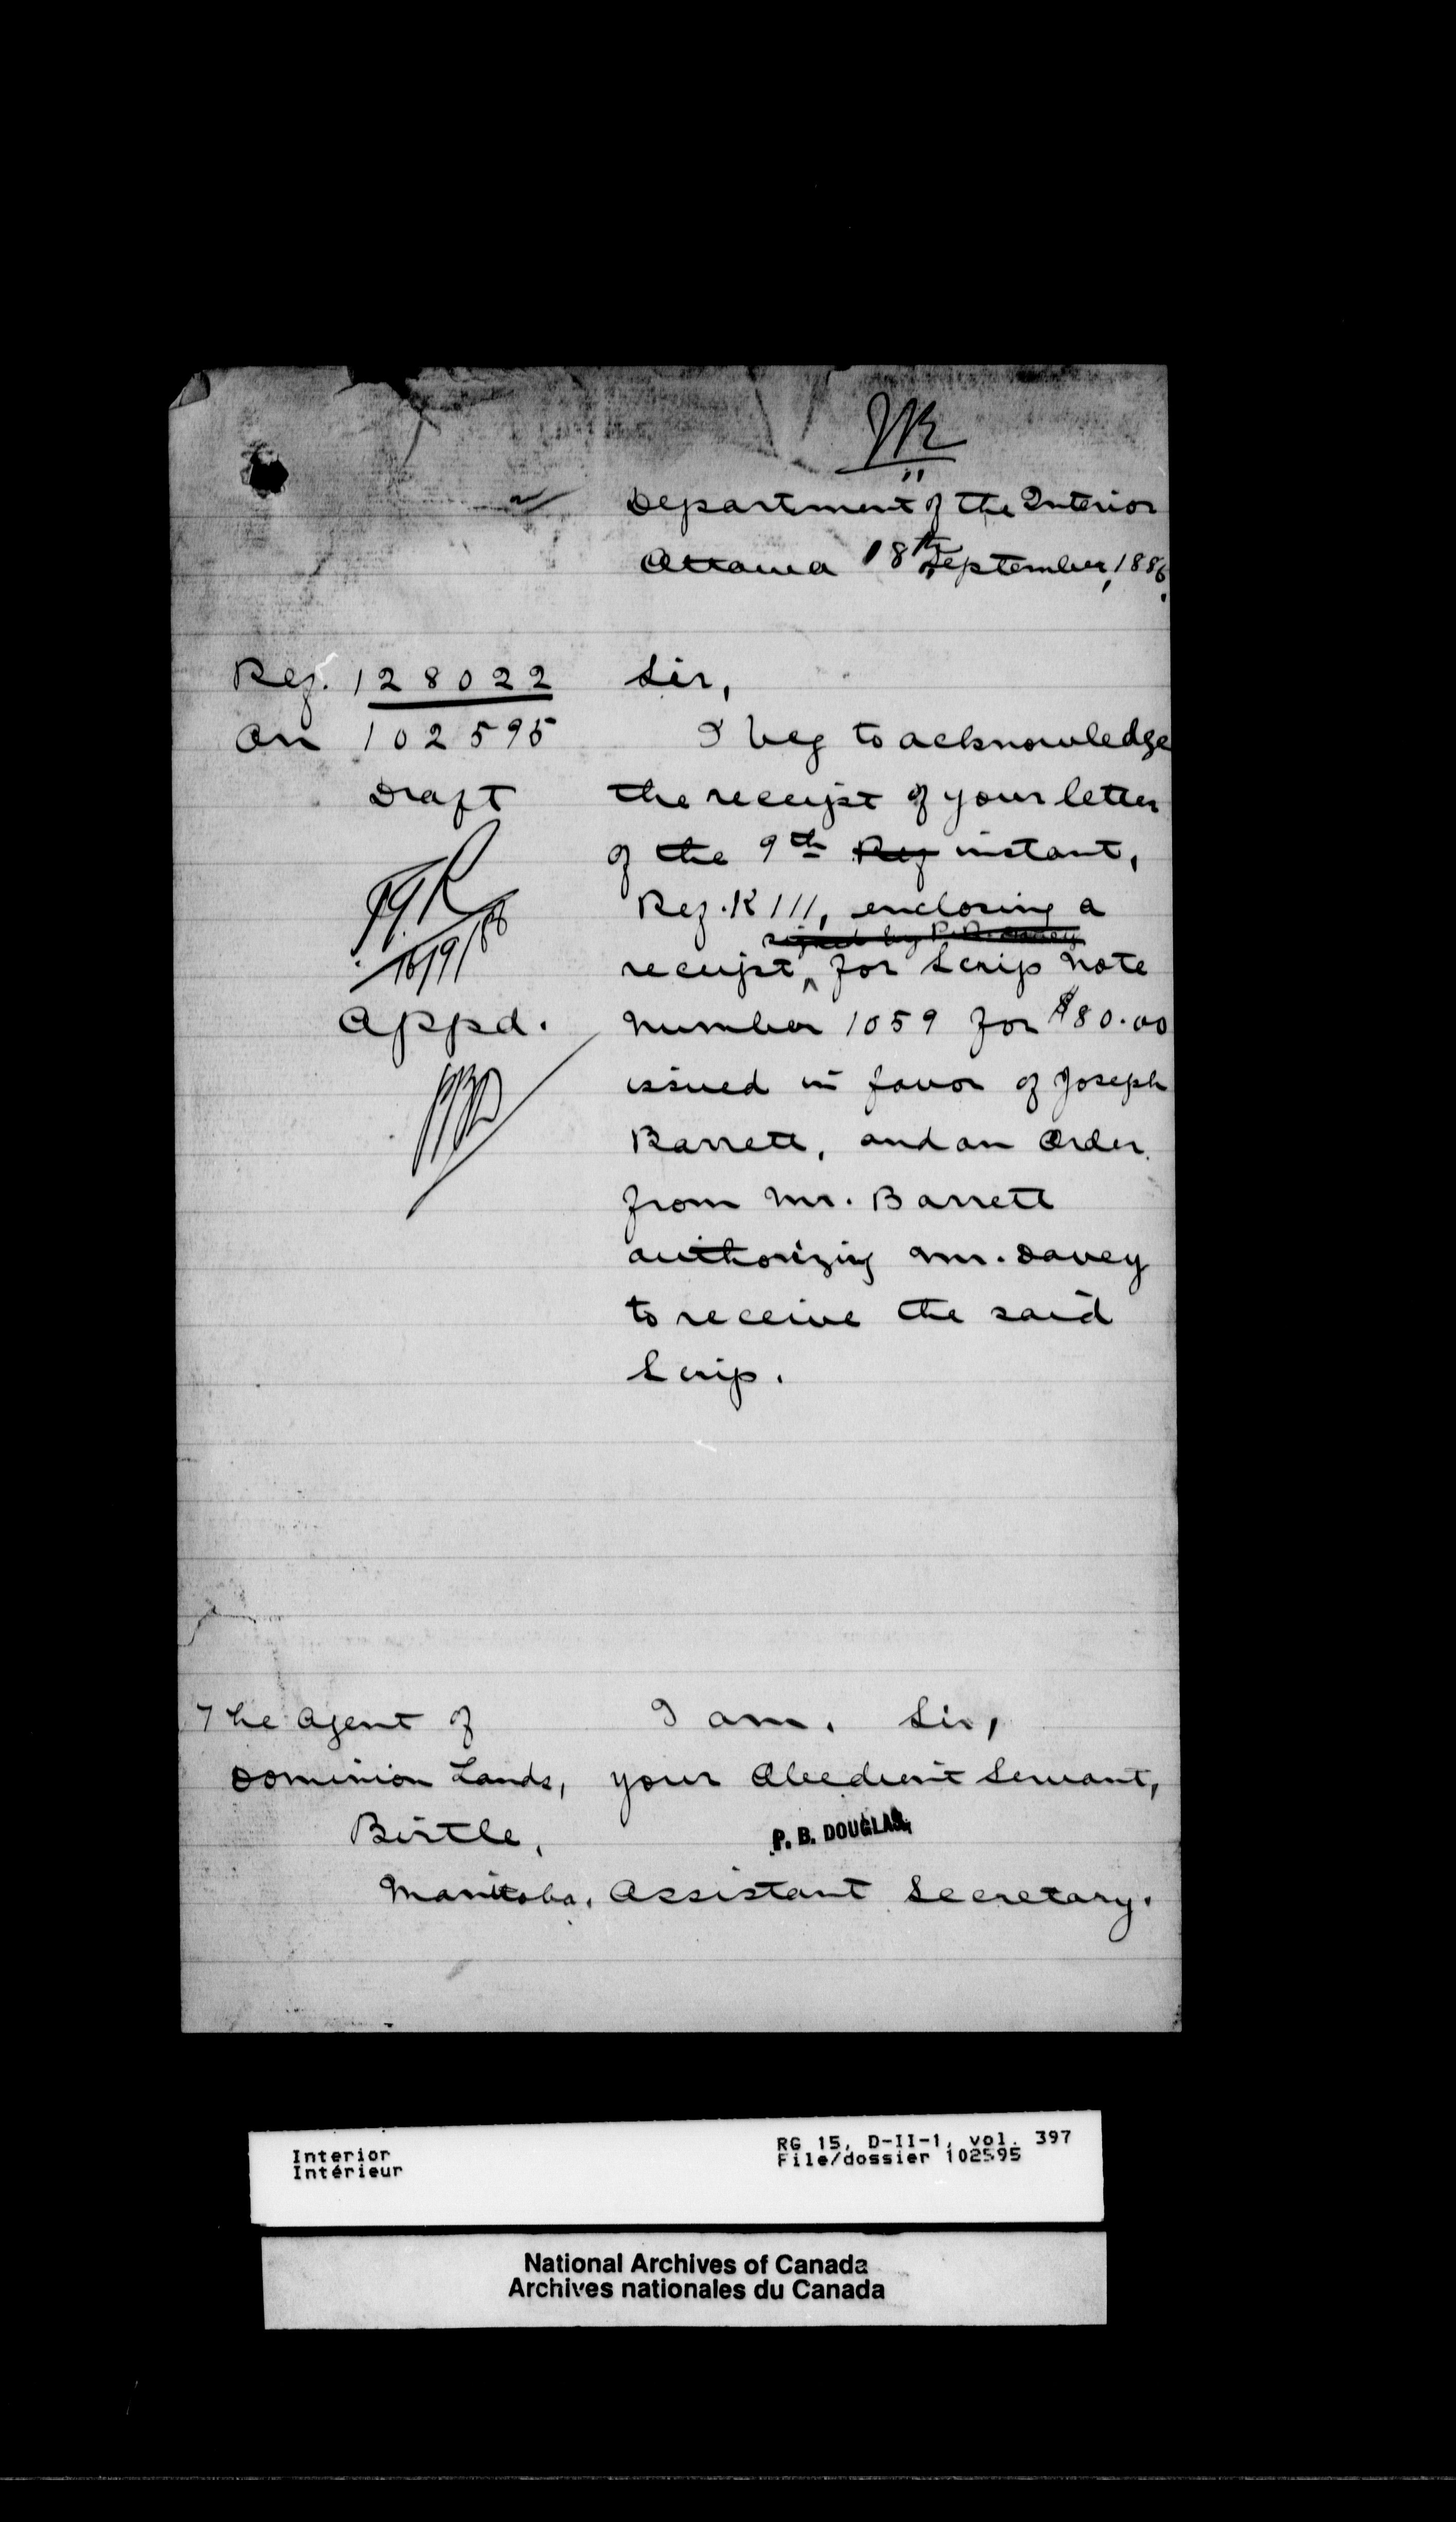 Department of the Interior
Ottawa 18th September, 1886.
Ref. 128022
On 102595
Draft
16/9/86
Appd.
Sir,
I beg to acknowledge
the receipt of your letter
of the 9th Ref instant,
Ref. K 111, enclosing a
signed by P.R. Davey
receipt ^ for Scrip Note
Number 1059 for $80.00
issued in favor of Joseph
Barrett, and an Order
from Mr. Barrett
authorizing Mr. Davey
to receive the said
Scrip.
I am, Sir,
Your Obedient Servant,
P. B. DOUGLAS,
Assistant Secretary.
The Agent of
Dominion Lands,
Birtle,
Manitoba.
Interior
Intérieur
RG 15, D-II-1, vol. 397
File/dossier 102595
National Archives of Canada
Archives nationales du Canada